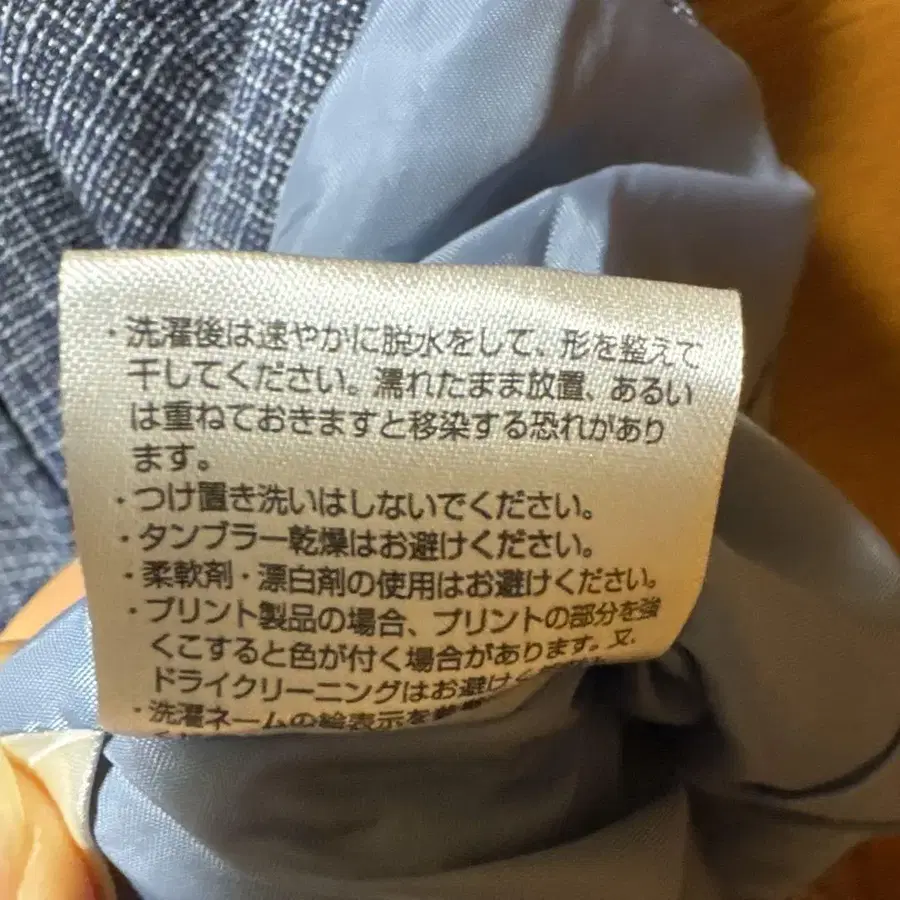 ・洗濯後は速やかに脱水をして、形を整えて
干してください。濡れたまま放置、あるい
は重ねておきますと移染する恐れがあり
ます。
・つけ置き洗いはしないでください。
・タンブラー乾燥はお避けください。
・柔軟剤・漂白剤の使用はお避けください。
・プリント製品の場合、プリントの部分を強
くこすると色が付く場合があります。又、
ドライクリーニングはお避け
・洗濯ネームの絵表示を